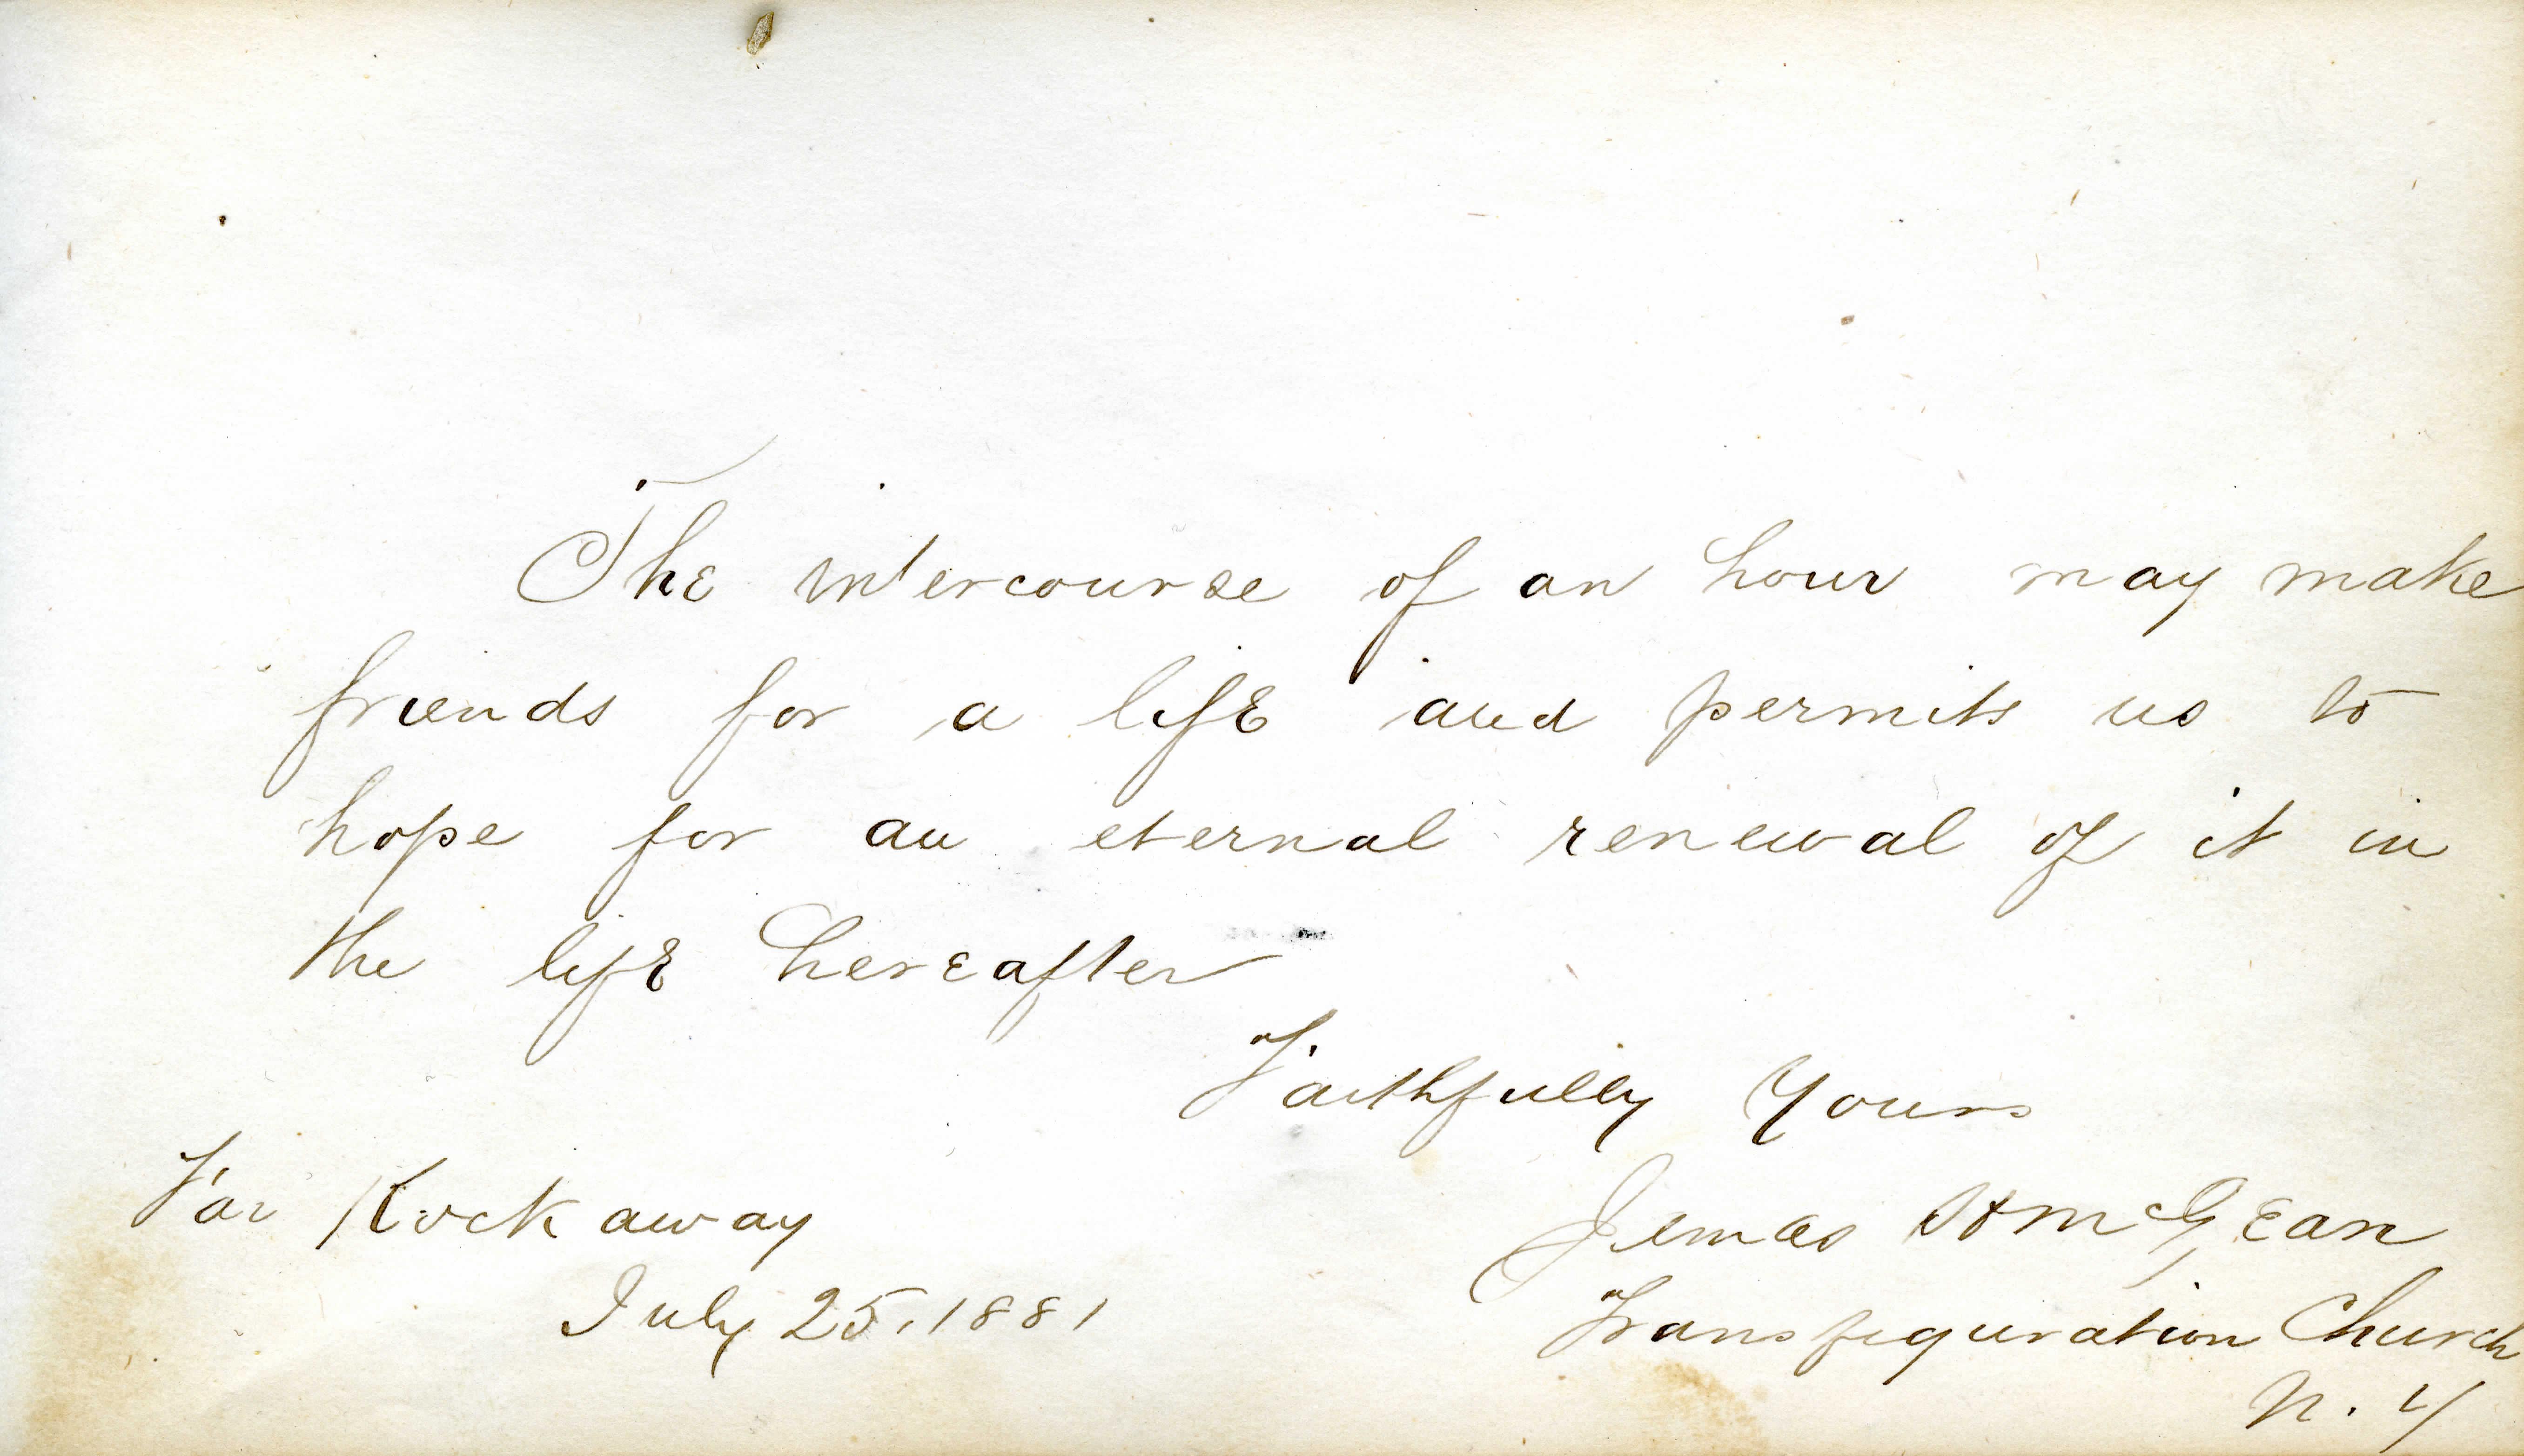 The intercourse of an hour may make
friends for a life and permits us to
hope for an eternal renewal of it in
the life hereafter
Faithfully Yours
Far Rockaway
James H McGean
July 25, 1881
Transfiguration Church
N. Y